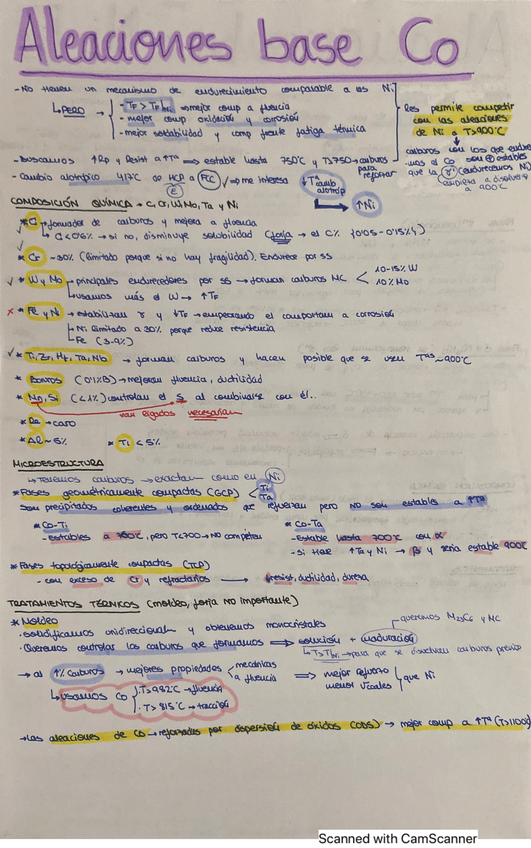 Aleaciones base Co
- No tienen un mecanismo de endurecimiento comparable a las Ni
↳ PERO → - TF > TF Ni → mejor comp a fluencia
- mejor comp oxidación y corrosión
- mejor soldabilidad y comp frente fatiga térmica
les permite competir
con las aleaciones
de Ni a T>900ºC
carburos con los que endure
- Buscamos ↑Rp y Resist a ↑Tª ⇒ estable hasta 750ºC y T>750→carburos
para reforzar
- Cambio alotrópico 417ºC de HCP a FCC → me interesa ↓Tª camb alotróp
E
→ ↑Ni
COMPOSICIÓN QUÍMICA → C, Cr, W, Mo, Ta y Ni
* C → formador de carburos y mejora a fluencia
↳ C<0'6% → si no, disminuye solubilidad (forja → el C% {0'05-0'15%})
* Cr - 30% (limitado porque si no hay fragilidad). Endurece por SS
* W y Mo → principales endurecedores por SS → forman carburos MC < 10-15% W
10% Mo
↳ usamos más el W → ↑TF
* Fe y Ni → estabilizan γ y ↓TF → empeorando el comportam a corrosión
↳ Ni limitado a 30% porque reduce resistencia
↳ Fe (3-9%)
* Ti, Zr, Hf, Ta, Nb → forman carburos y hacen posible que se usen Tªs ~900ºC
* Boruros (0'1%B) → mejoran fluencia, ductilidad
* Mn, Si (<1%) controlan el S al combinarse con él..
van ligados necesarian
* Re → caro
* Al ~ 5%
* Ti < 5%
MICROESTRUCTURA
→ Tenemos carburos → exactam como en Ni
* Fases geométricamente compactas (GCP) < Ti
Ta
son precipitados coherentes y ordenados que refuerzan pero NO son estables a ↑Tª
* Co-Ti
- estables a 700ºC, pero T<700 → NO compiten
* Co-Ta
- Estable hasta 700ºC con α
- si HCP ↑Ta y Ni → β y sería estable 900ºC
* Fases topológicamente compactas (TCP)
- con exceso de Cr y refractarios → ↓resist, ductilidad, dureza
TRATAMIENTOS TÉRMICOS (moldeo, forja no importante)
* Moldeo
- solidificamos unidireccional y obtenemos monocristales
queremos M23C6 y MC
- Queremos controlar los carburos que formamos ⇒ solución + maduración
para que se disuelvan carburos previo
→ al ↑% carburos → mejores propiedades < mecánicas
a fluencia
⇒ mejor refuerzo
menor
que Ni
↳ usamos Co
· T>982ºC → fluencia
· T> 815ºC → tracción
→ Las aleaciones de Co → reforzadas por dispersión de óxidos (ODS) → mejor comp a ↑Tª (T>1100ºC)
Scanned with CamScanner